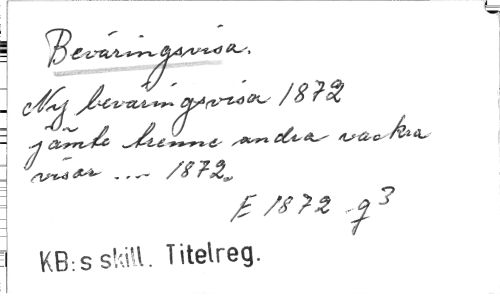 Beväringsvisa.
Ny beväringsvisa 1872
jämte trenne andra vackra
visor .... 1872.
E 1872 g3
KB:s skill. Titelreg.